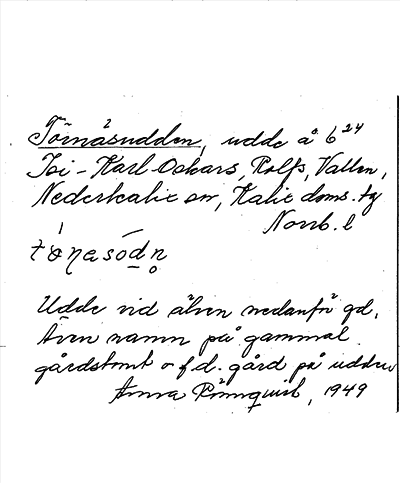 Törnäsudden, udde å 6 24
Toi-Karl-Oskars, Rolfs, Vallen,
Nederkalix sn, Kalix doms. tg
Norrb. l
Udde vid älven nedanför gd.
Även namn på gammal
gårdstomt o f d. gård på udden
Anna Rönnquist, 1949